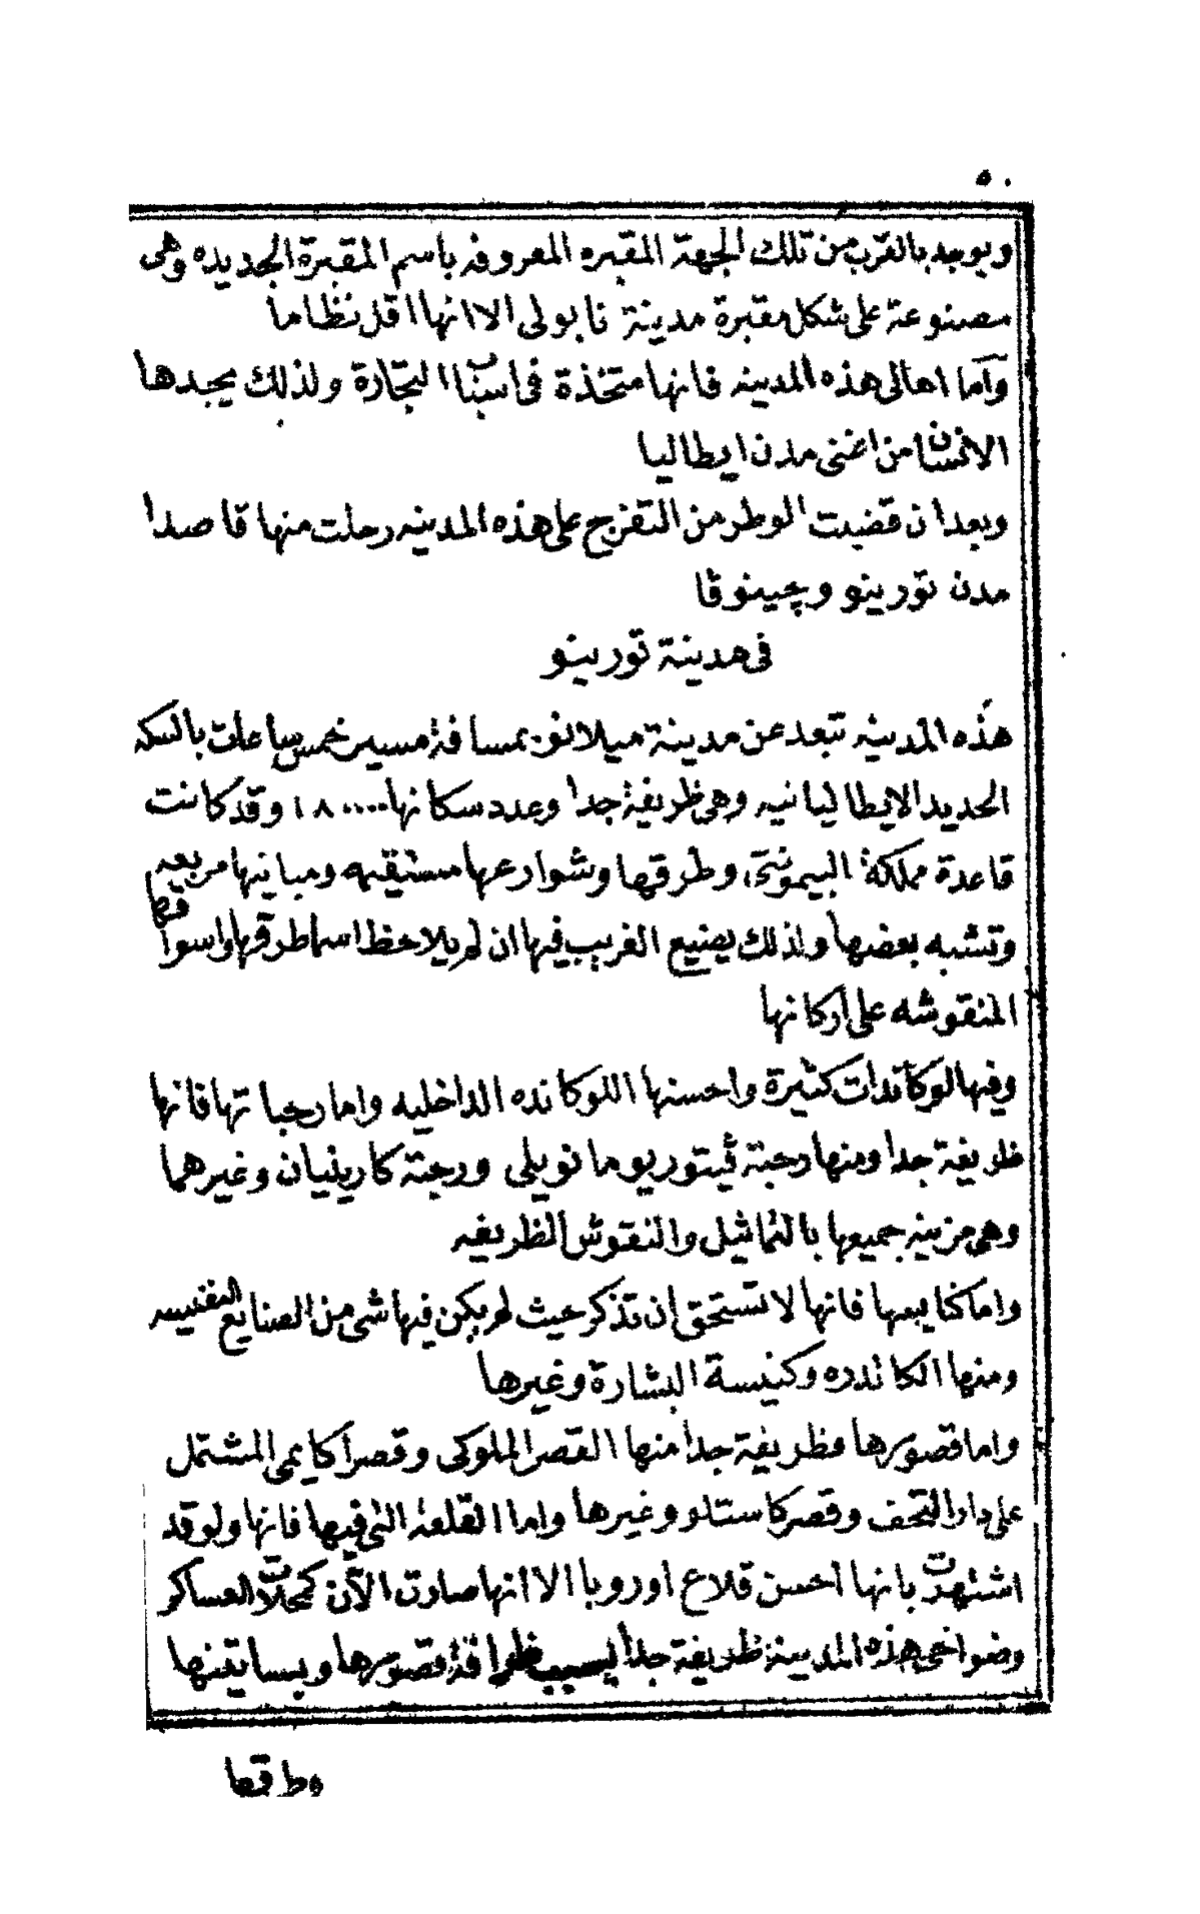 ٥٠
ويوجد بالقرب من تلك الجهة المقبره المعروفه باسم المقبرة الجديده وهى
مصنوعة على شكل مقبرة مدينة نابولى الا انها اقل نظاما
وآما اهالى هذه المدينه فانها متخذة فى اسباب التجارة ولذلك يجدها
الانسان من اغنى مدن ايطاليا
وبعد ان قضيت الوطر من التفرج على هذه المدينه رحلت منها قاصدا
مدن تورينو وچينوڤا
فى مدينة تورينو
هذه المدينه تبعد عن مدينة ميلانو بمسافة مسير خمس ساعات بالسكه
الحديد الايطاليانيه وهى ظريفة جدا وعدد سكانها ١٨٠٠٠٠ وقد كانت
قاعدة مملكة البيمونتى وطرقها وشوارعها مستقيمه ومبانيها مربعه
وتشبه بعضها ولذلك يضيع الغريب فيها ان لم يلاحظ اسما طرقها واسواقها
المنقوشه على اركانها
وفيها لوكاندات كثيرة واحسنها اللوكانده الداخليه واما رحباتها فانها
ظريفة جدا ومنها رحبة ڤيتوريو مانويلى ورحبة كارينيان وغيرهما
وهى مزينه جميعها بالتماثيل والنقوش الظريفه
واما كنايسها فانها لا تستحق ان تذكر حيث لم يكن فيها شى من الصنايع النفيسه
ومنها الكاتدره وكنيسة البشارة وغيرها
واما قصورها فظريفة جدا منها القصر الملوكى وقصر اكايمى المشتمل
على دار التحف وقصر كاستلو وغيرها واما القلعة التى فيها فانها ولو قد
اشتهرت بانها احسن قلاع اوروبا الا انها صارت الآن كمحلات العساكر
وضواحى هذه المدينة ظريفة جدا بسبب ظرافة قصورها وبساتينها
وطرقها